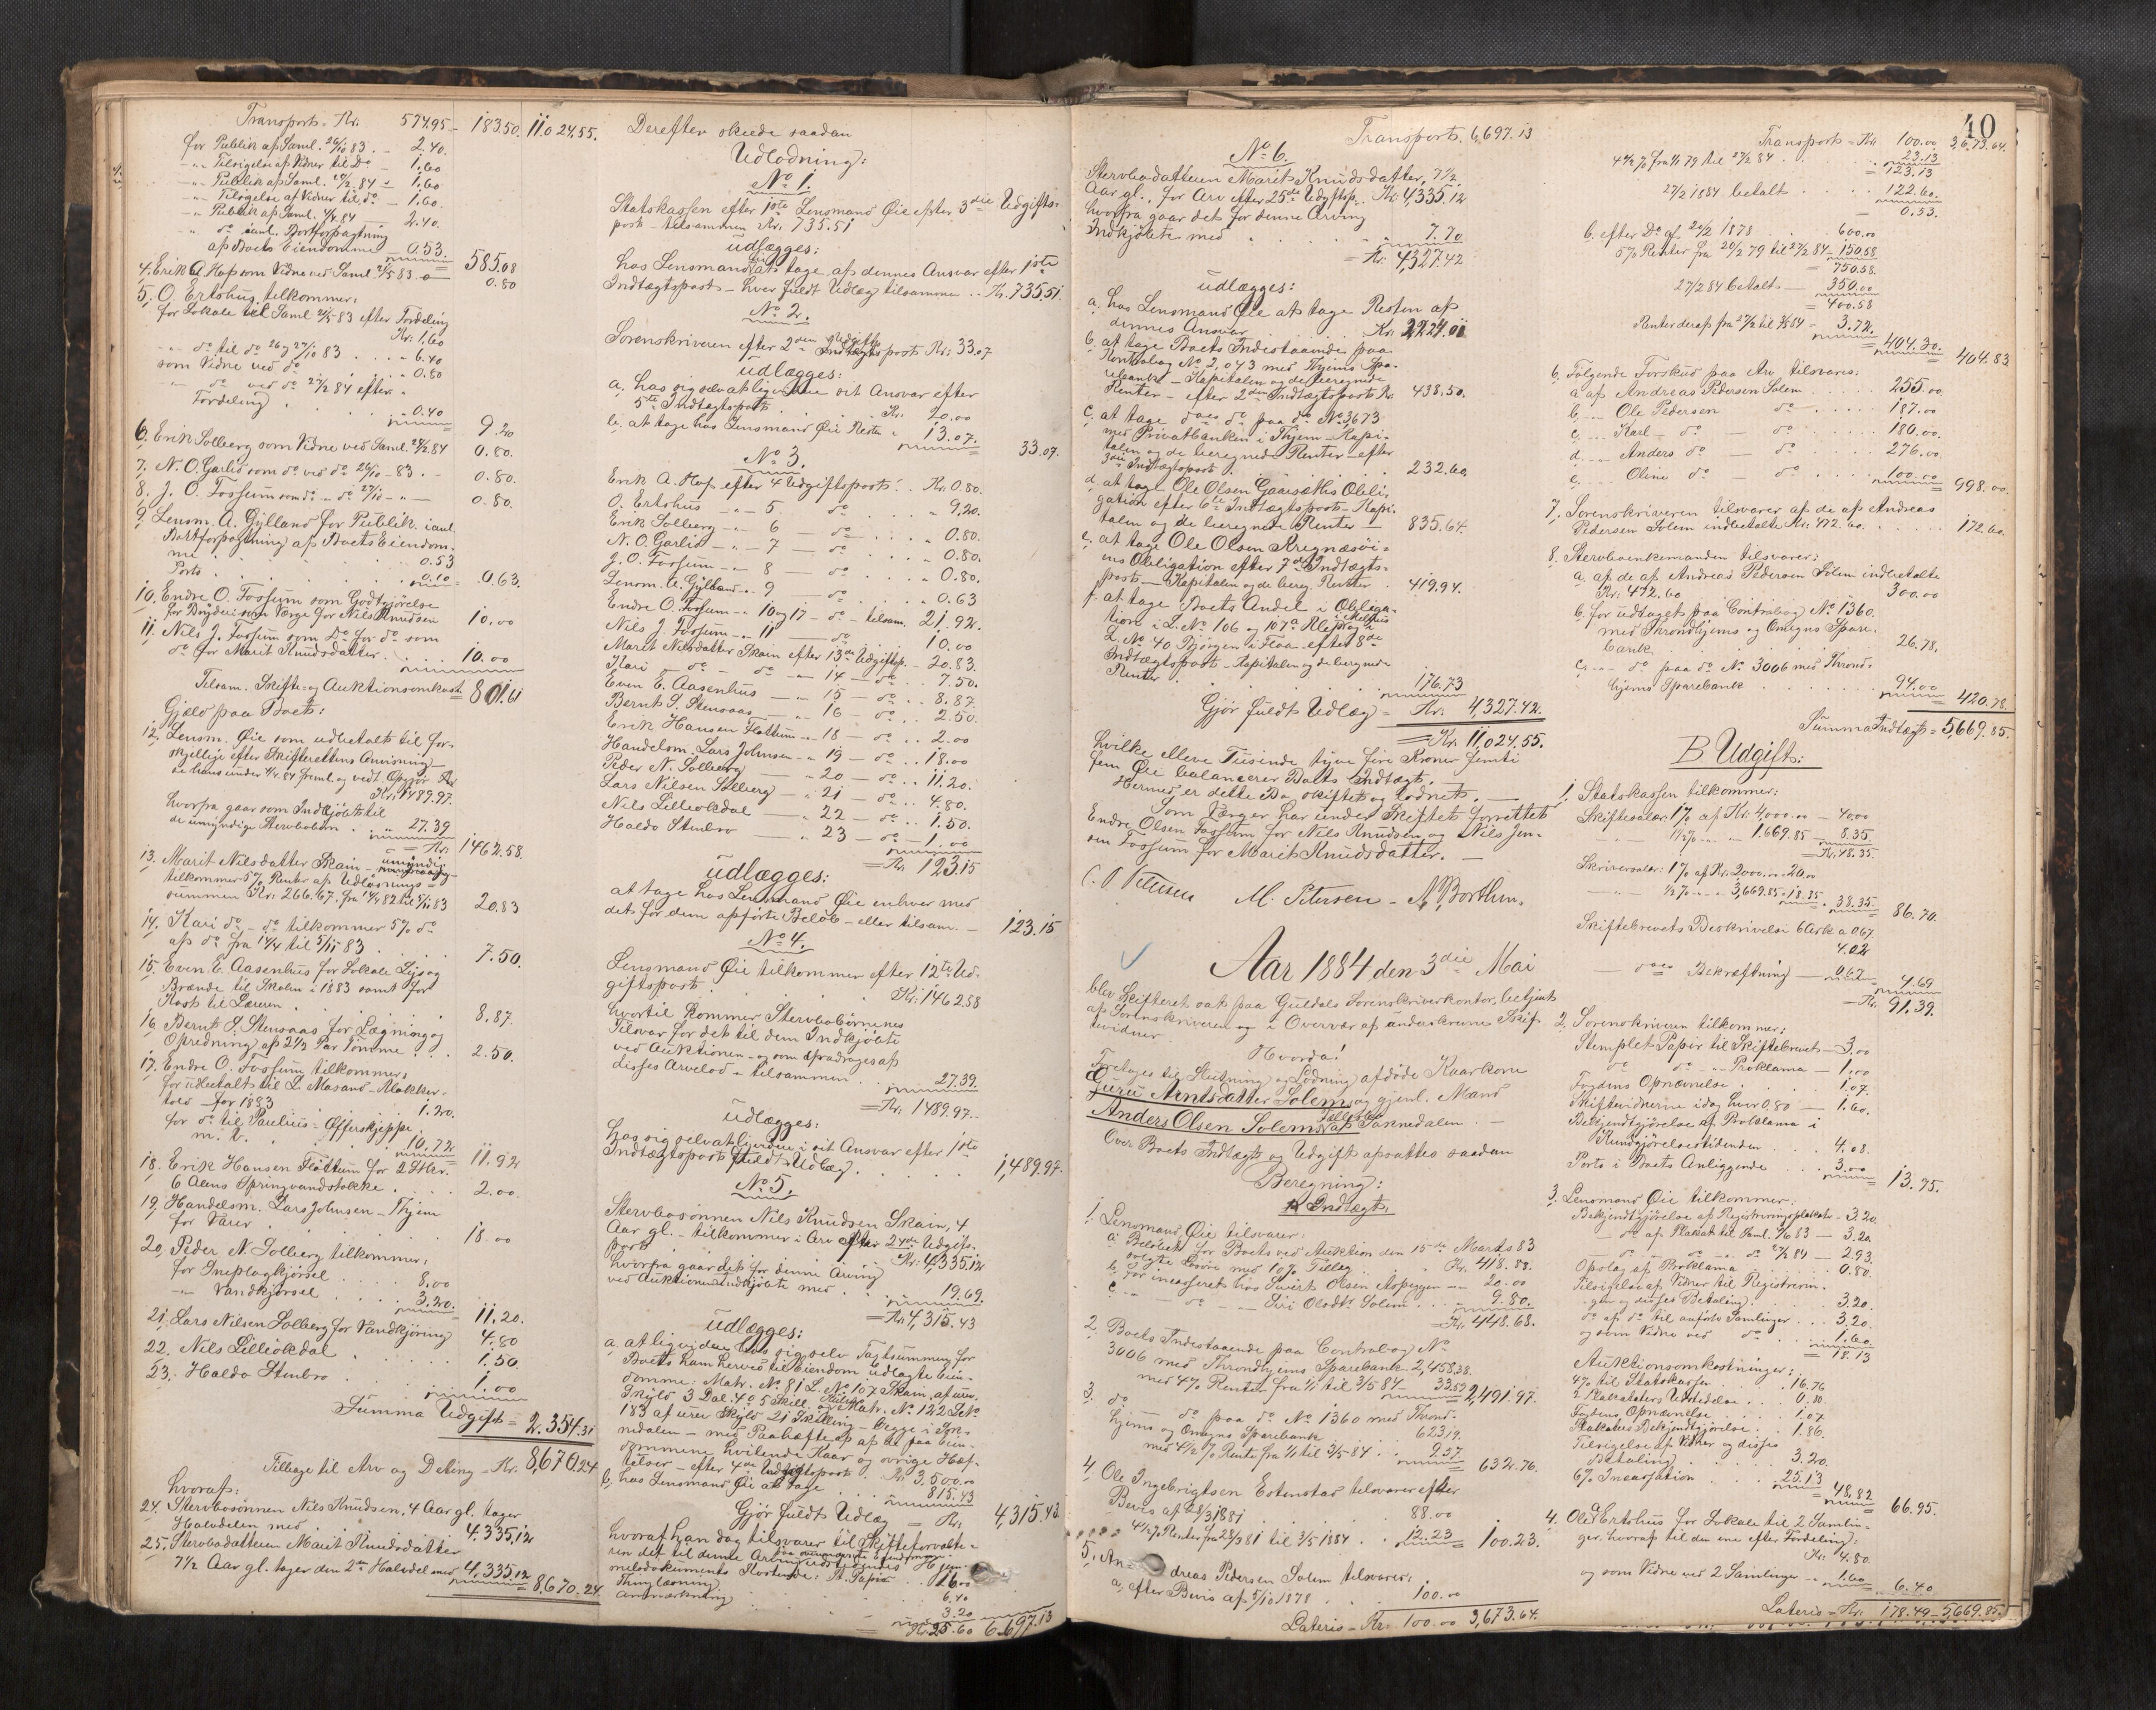 Transport Kr. 574.95 183.50. 11.024.55.
for Publik af Saml. 26/10 83. - 2.40.
-"- Tilsigelse af Vidner til Do - 1.60
-"- Publik af Saml. 27/2 84 - 1.60
-"- Tilsigelse af Vidner til do - 1.60.
" Publik af Saml. 4/4 84 2.40.
" do saml. Bortforpagtning
af Boets Eiendomme - 0.53. 585.08
4. Erik A. Hof som Vidne ved Saml. 21/5 83 0.80
5. O. Ertshus tilkommer:
for Lokale til Saml 21/5-83 efter Fordeling
Kr. 1.60
-"- do til do 26 og 27/10 83 . . . " 6.40
som Vidne ved do " 0.80
" do ved do 27/2 84 efter
Fordeling . . . " 0.40 9.20
6. Erik Solberg som Vidne ved Saml. 27/2 84 0.80.
7. N. O. Garlid som do ved do 26/10-83. - 0.80.
8. J. O. Fossum som do - do 27/10 -"- 0.80.
9. Lensm. A. Gylland for Publik. saml.
Bortforpagtning af Boets Eiendom-
me . . . 0.53
Porto . . . 0.10 0.63.
10. Endre O. Fossum som Godtgjørelse
for Bryderi som Værge for Nils Knudsen 10.00
11. Nils J. Fossum som Do for do som
do for Marit Knudsdatter . . . 10.00
Tilsam. Skifte- og Auktionsomkost. 801.61
Gjæld paa Boet:
12. Lensm. Øie som udbetalt til for-
skjellige efter Skifterettens Anvisning
Kr. 1489.97.
hvorfra gaar som Indkjøbt til
de umyndige Stervbobørn . " 27.39
= Kr. 1462.58.
13. Marit Nilsdatter Skain - umyndig
tilkommer 5% Renter af Udløsnings-
summen Kr. 266.67. fra 14/4 82 til 5/11 83 20.83
14. Kari do - do tilkommer 5% do
af do fra 14/4 til 5/11 83 . . . 7.50.
15. Even E. Aasenhus for Lokale Lys og
Brænde til Skolen i 1883 samt for
Kost til Læreren . . . 8.87.
16. Bernt S. Stensaas for Lægning og
Opredning af 2 1/2 Par Tømme . . 2.50.
17. Endre O. Fossum tilkommer:
for udbetalt til L. Masand - Makker-
told for 1883 1.20.
for do til Paulius - Offerskjeppe
m. v. . . . 10.72 11.92
18. Erik Hansen Flottum for 2 Stkr.
6 Alens Springvandstokke . . . 2.00.
19. Handelsm. Lars Johnsen - Thjem
for Varer . . . 18.00
20. Peder N. Solberg tilkommer:
for Sneplogkjørsel . . . . 8.00
-"- Vandkjørsel . . . . 3.20. 11.20.
21. Lars Nilsen Solberg for Vandkjøring 4.80
22. Nils Lilleøkdal . . . . . 1.50.
23. Haldo Stenbro . . . . . 1.00
Summa Udgift = 2.354.31
Tilbage til Arv og Deling - Kr. 8,670.24
hvoraf:
24. Stervbosønnen Nils Knudsen, 4 Aar gl. tager
Halvdelen med . . . 4.335.12
25. Stervbodatteren Marit Knudsdatter
7 1/2 Aar gl. tager den 2den Halvdel med 4,335.12 8,670.24
Derefter skede saadan
Udlodning:
No 1.
Statskassen efter 1ste Lensmand Øie efter 3die Udgifts-
post - tilsammen Kr. 735.51
Udlægges:
hos Lensmand Øie at tage af dennes Ansvar efter 1ste
Indtægtspost - hver fuldt Udlæg tilsammen .. Kr. 735.51.
No 2.
Sorenskriveren efter 2den Udgifts post Kr. 33.07
Udlægges:
a. hos sig selv at ligvidere sit Ansvar efter
5te Indtægtspost . . . Kr. 20.00
b. at tage hos Lensmand Øie Resten " 13.07. 33.07.
No 3.
Erik A. Hof efter 4 Udgiftspost . . Kr. 0.80.
O. Ertshus -"- 5. do . . . " 9.20.
Erik Solberg -"- 6 do . . . " 0.80.
N. O. Garlid -"- 7 - do . . . " 0.80.
J. O. Fossum -"- 8 - do . . . " 0.80.
Lensm. A. Gylland -"- 9 - do . . " 0.63
Endre O. Fossum -"- 10 og 17 - do - tilsam. 21.92.
Nils J. Fossum -"- 11 do . . 10.00
Marit Nilsdatter Skain efter 13de Udgiftsp. - 20.83.
Kari - do - do -"- 14 - do . . 7.50.
Even E. Aasenhus -"- 15 - do . . 8.87.
Bernt S. Stensaas -"- 16 - do . . 2.50.
Erik Hansen Flottum -"- 18 - do . . 2.00
Handelsm. Lars Johnsen -"- 19 - do . . 18.00
Peder N. Solberg -"- 20 - do . . 11.20.
Lars Nilsen Solberg -"- 21 - do . . 4.80.
Nils Lilleøkdal -"- 22 - do . . 1.50.
Haldo Stenbro -"- 23 - do - 1.00
= Kr. 123.15
Udlægges:
at tage hos Lensmand Øie enhver med
det for dem opførte Beløb - eller tilsam. - 123.15
No 4.
Lensmand Øie tilkommer efter 12te Ud-
giftspost . . . Kr. 1462.58
hvortil kommer Stervbobørnenes
Tilsvar for det til dem Indkjøbte
ved Auktionen - og som fradrages af
disses Arvelod - tilsammen . . . 27.39.
= Kr. 1489.97.
Udlægges:
hos sig selv at ligvidere i sit Ansvar efter 1ste
Indtægtspost fuldt Udlæg . . . 1,489.97.
No 5.
Stervbosønnen Nils Knudsen Skain, 4
Aar gl. - tilkommer i Arv efter 24de Udgifts-
post . . . Kr. 4.335.12
hvorfra gaar det for denne Arving
ved Auktionen Indkjøbte med . . . 19.69.
= Kr. 4,315.43
Udlægges:
a. at ligvidere hos sig selv Taxtsummen for
Boets ham herved til Eiendom udlagte Eien-
domme: Matr. No 81 L. No 107 Skain, af urev.
Skyld 3 Dal. 4 o 5 Skill. og Matr. No 122 L No
183 af urev Skyld 21 Skilling - begge i Sok-
nedalen - med Paahæfte af de paa Eien-
dommene hvilende Kaar og øvrige Hæf-
telser - efter 4de Indtægtspost . Kr 3,500.00
b. hos Lensmand Øie at tage . . . 815.43
Gjør fuldt Udlæg = Kr. 4,315.43.
hvoraf han dog tilsvarer til Skifteforvalte-
ren det til denne Arving udstedendes Hjem-
melsdokuments Kostende: St. Papir . . 16.00
Thinglæsning . . . 6.40
Anmærkning . . . 3.20
Kr. 25.60 6.697.13
Transport. 6,697.13
No 6.
Stervbodatteren Marit Knudsdatter, 7 1/2
Aar gl., for Arv efter 25de Udgiftsp. . Kr. 4,335.12
hvorfra gaar det for denne Arving
Indkjøbte med . . . " 7.70
= Kr. 4,327.42
Udlægges:
a. hos Lensmand Øie at tage Resten af
dennes Ansvar . . . Kr. 2224.01
b. at tage Boets Indestaaende paa
Kontrabog No 2,043 med Thjems Spa-
rebank - Kapitalen og de beregnede
Renter - efter 2den Indtægtspost Kr. 438.50.
c. at tage do do paa do No 3673
med Privatbanken i Thjem - Kapi-
talen og de beregnede Renter - efter
3die Indtægtspost . . . 232.60.
d. at tage Ole Olsen Gaarsæths Obli-
gation efter 6te Indtægtspost - Kapi-
talen og de beregnede Renter - 835.64.
e. at tage Ole Olsen Kregnæsøi-
ens Obligation efter 7de Indtægts-
post - Kapitalen og de bereg. Renter . 419.94.
f. at tage Boets Andel i Obliga-
tion i L. No 106 og 107a Klep og i
L. No 40 Bjørgen i Floa efter 8de
Indtægtspost - Kapitalen og de beregnede
Renter . . . 176.73
Gjør fuldt Udlæg = Kr. 4,327.42.
= Kr. 11,024.55.
hvilke elleve Tusinde tyve fire Kroner femti
fem Øre balancerer Boets Indtægt.
Hermed er dette Bo skiftet og lodnet.
Som Værger har under Skiftet forrettet
Endre Olsen Fossum for Nils Knudsen og Nils Jen-
sen Fossum for Marit Knudsdatter.
M. Petersen - N. Borthen.
Aar 1884 den 3die Mai
blev Skifteret sat paa Guldals Sorenskriverkontor, betjent
af Sorenskriveren og i Overvær af underskrevne Skif-
tevidner
Hvorda!
Foretages til Slutning og Lodning afdøde Kaarkone
Guru Arntsdatter Solem og gjenl. Mand
Anders Olsen Solems Fællesbo af Soknedalen.
Over Boets Indtægt og Udgift opsattes saadan
Beregning:
A Indtægt.
1. Lensmand Øie tilsvarer:
a. Beløbet for Boets ved Auktion den 15de Marts 83
solgte Løsøre med 10% Tillæg . . Kr. 418.88.
b. for incasseret hos Sivert Olsen Aspeggen - 20.00
c. -"- do -"- Siri Olsdtr Solem . . . 9.80.
= Kr. 448.68.
2. Boets Indestaaende paa Contrabog No
3006 med Throndhjems Sparebank 2,458.38.
med 4% Renter fra 1/1 til 3/5 84 - 33.59 2,491.97.
3. do do paa do No 1360 med Thrond-
hjems og Omegns Sparebank . 623.19.
med 4 1/2 % Rente fra 1/1 til 3/5-84 . . 9.57. 632.76.
4. Ole Ingebrigtsen Estenstad tilsvarer efter
Bevis af 28/3 1881 . . . 88.00
4 1/2 % Renter fra 28/3 81 til 3/5 1884 . . 12.23 100.23.
5. Andreas Pedersen Solem tilsvarer:
a. efter Bevis af 5/10 1878 . . . 100.00
Lateris - Kr. 100.00 3,673.64.
40
Transport = Kr. 100.00 3673.64.
4 1/2 % fra 1/1 79 til 27/2 84 . . . 23.13
= 123.13
27/2 1884 betalt . . . 122.60.
= 0.53.
b. efter Do af 20/2 1878 . . 600.00
5% Renter fra 20/2 79 til 27/2 84 - 150.58
= 750.58.
27/2 84 betalt - 350.00
= 400.58
Renter deraf fra 27/2 til 3/5 84 - 3.72.
= 404.30. 404.83.
6. Følgende Forskud paa Arv tilsvares:
a af Andreas Pedersen Solem . . . 255.00
b. -"- Ole Pedersen do . . . 187.00
c. -"- Karl - do - do . . . 180.00.
d. -"- Anders do - do . . . 276.00.
e. -"- Oline do - do . . . 100.00 998.00.
7. Sorenskriveren tilsvarer af de af Andreas
Pedersen Solem indbetalte Kr. 472.60 . . . 172.60.
8. Stervboenkemanden tilsvarer:
a. af de af Andreas Pedersen Solem indbetalte
Kr. 472.60 300.00
b. for udtaget paa Contrabog No 1360.
med Throndhjems og Omegns Spare-
bank . . . 26.78.
c. -"- do paa do No 3006 med Thrond-
hjems Sparebank . . . 94.00 420.78.
Summa Indtægt = 5,669.85.
B Udgift:
1. Statskassen tilkommer:
Skiftesalær 1% af Kr. 4,000.00 - 40.00
1/2 % -"- 1,669.85 - 8.35.
= Kr. 48.35.
Skriversalær: 1% af Kr. 2000.00 = 20.00
-"- 1/2 % -"- 3,669.85 = 18.35 38.35. 86.70.
Skiftebrevets Beskrivelse 6 Ark a 0.67.
4.02
do Bekræftning - 0.67 4.69
= Kr. 91.39.
2. Sorenskriveren tilkommer:
Stemplet Papir til Skiftebrevet - 3.00
do do -"- Proklama - 1.00
Fogdens Opnævnelse . . . 1.07.
Skiftevidnerne idag hver 0.80 - 1.60.
Bekjendtgjørelse af Proklama i
Kundgjørelsestidenden . . . 4.08.
Porto i Boets Anliggende . . . 3.00 13.75.
3. Lensmand Øie tilkommer:
Bekjendtgjørelse af Registreringsplakate - 3.20.
do af Plakat til Saml. 83 - 3.20
do -"- do -"- do 27/2 84 - 2.93.
Opslag af Proklama . . . 0.80.
Tilsigelse af Vidner til Registrerin-
gen og disses Betaling . . . 3.20.
do af do til anførte Samlinger . . . 3.20.
og som Vidne ved do . . . 1.60
= 18.13
Auktionsomkostninger:
4% til Statskassen . . . 16.76
2 Plakaters Udstedelse . . 0.80.
Fogdens Opnævnelse . . . 1.07
Plakaters Bekjendtgjørelse . . 1.86.
Tilsigelse af Vidner og disses
Betaling . . . 3.20.
6% Incassation . . . 25.13
48.82 66.95.
4. Ole Ertshus for Lokale til 2 Samlin-
ger hvoraf til den ene efter Fordeling:
Kr. 4.80.
og som Vidne ved 2 Samlinger -"- 1.60 6.40
Lateris = Kr. 178.49 - 5,669.85.